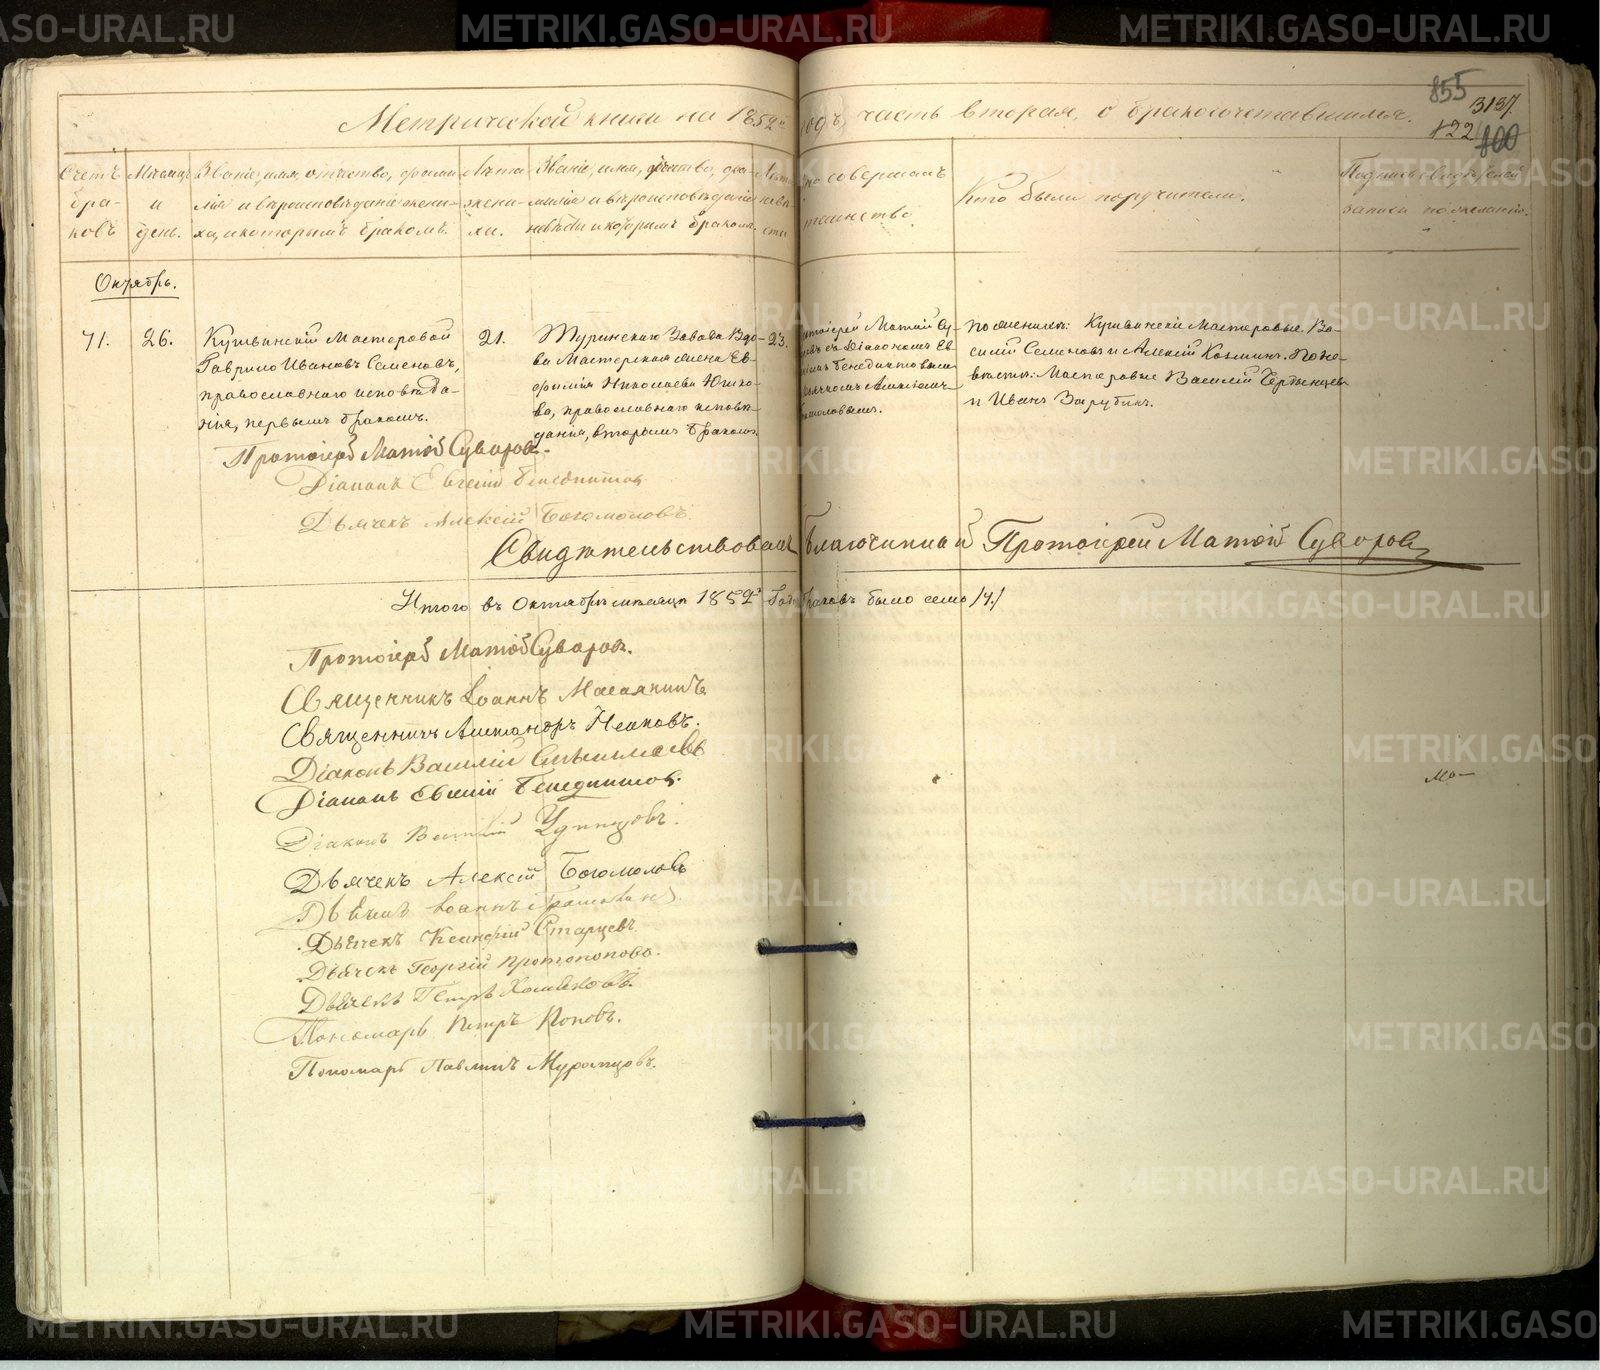 855
3137
122
800
Метрической книги на 1852й годъ, часть вторая, о бракосочетавшихся.
Счетъ бра- ковъ
Мѣсяцъ и день.
Званіе, имя, отчество, фами-
лія и вѣроисповѣданіе жени-
ха, и которымъ бракомъ.
Лѣта жени- ха.
Званіе, имя, отчество, фа-
милія и вѣроисповѣданіе
невѣсты и которымъ бракомъ.
Лѣта невѣ- сты
Кто совершалъ
таинство
Кто были поручители.
Подпись свидѣтелей
записи по желанію.
Октябрь.
71.
26.
Кушвинскій Мастеровой
Гаврило Ивановъ Семеновъ,
православнаго исповѣда-
нія, первымъ бракомъ.
21.
Туринскаго Завода Вдо-
ва Мастерская жена Ев-
фимія Николаева
ва, православнаго исповѣ-
данія, вторымъ бракомъ.
23.
Протоіерей Матѳій Су-
воровъ съ Діакономъ Ев-
геніемъ Бенедиктовымъ
Дьячкомъ Алексіемъ
Богомоловымъ.
По женихѣ: Кушвинскіе Мастеровые Ва-
силій Семеновъ и Алексій Козминъ. По не-
вѣстѣ: Мастеровые Василій
и Иванъ Зарубинъ.
Протоіерей Матѳій Суворовъ.
Діаконъ Евгеній Бенедиктовъ
Дьячекъ Алексій Богомоловъ.
Свидѣтельствовалъ Благочинный Протоіерей Матѳій Суворовъ
Итого въ Октябрѣ мѣсяцѣ 1852го Года браковъ было семь /7./
Протоіерей Матѳій Суворовъ.
Священникъ Іоаннъ
Священникъ Александръ
Діаконъ Василій
Діаконъ Евгеній Бенедиктовъ.
Діаконъ
Дьячекъ Алексій Богомоловъ
Дьячекъ Іоаннъ
Дьячекъ Ксенофонтъ Старцевъ
Дьячекъ Георгій Протопоповъ.
Дьячекъ Петръ
Пономарь Петръ Поповъ.
Пономарь Павлинъ Муромцовъ.
METRIKI.GASO-URAL.RU